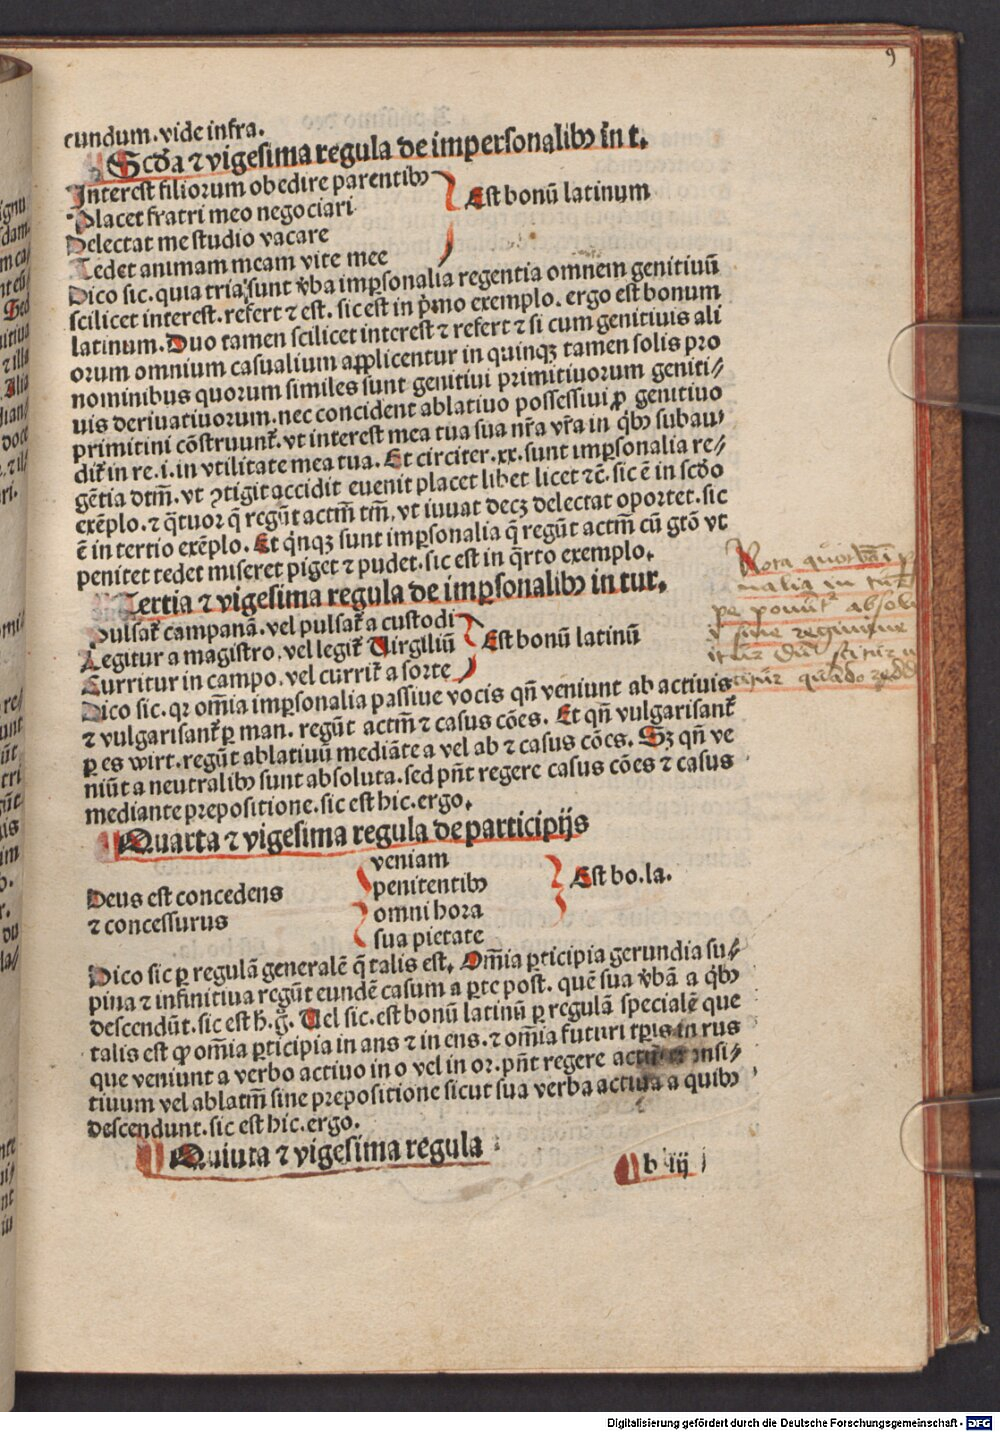 9
cundum. vide infra.
Scḋa ⁊ vigesima regula de impersonalibꝰ in t.
Interest filiorum obedire parentibꝰ
Placet fratri meo negociari
Delectat me studio vacare
Tedet animam meam vite mee
Est bonū latinum
Dico sic. quia tria sunt v̓ba imp̲sonalia regentia omnem genitiuū
scilicet interest. refert ⁊ est. sic est in p̓mo exemplo. ergo est bonum
latinum. Duo tamen scilicet interest ⁊ refert ⁊ si cum genitiuis ali
orum omnium casualium applicentur in quinqꝫ tamen solis pro
nominibus quorum similes sunt genitiui primitiuorum geniti⸗
uis deriuatiuorum. nec concident ablatiuo possessiui ꝓ genitiuo
primitiui cōstruunt᷑. vt interest mea tua sua nr̄a vr̄a in q̓bꝰ subau⸗
dit᷑ in re .i. in vtilitate mea tua. Et circiter .xx. sunt imꝑsonalia re⸗
gētia dtm̄. vt ꝯtigit accidit euenit placet libet licet ⁊c̄. sic ē in scḋo
exēplo. ⁊ q̄tuor q̄ regūt actm̄ tm̄, vt iuuat decꝫ delectat oportet. sic
ē in tertio exēplo. Et q̓nqꝫ sunt imꝑsonalia q̄ regūt actm̄ cū gtō vt
penitet tedet miseret piget ⁊ pudet. sic est in q̄rto exemplo.
Tertia ⁊ vigesima regula de imꝑsonalibꝰ in tur.
Pulsat᷑ campanā. vel pulsat᷑ a custodi
Legitur a magistro. vel legit᷑ Virgiliū
Curritur in campo. vel currit᷑ a sorte
Est bonū latinū
Dico sic. qꝛ om̄ia imꝑsonalia passiue vocis qn̄ veniunt ab actiuis
⁊ vulgarisant᷑ ꝑ man. regūt actm̄ ⁊ casus cōes. Et qn̄ vulgarisant᷑
ꝑ es wirt. regūt ablatiuū mediāte a vel ab ⁊ casus cōes. Sꝫ qn̄ ve
niūt a neutralibꝰ sunt absoluta. sed pn̄t regere casus cōes ⁊ casus
mediante prepositione. sic est hic. ergo.
Quarta ⁊ vigesima regula de participijs
Deus est concedens
⁊ concessurus
veniam
penitentibꝰ
omni hora
sua pietate
Est bo. la.
Dico sic ꝑ regulā generalē q̄ talis est. Om̄ia ꝑticipia gerundia su⸗
pina ⁊ infinitiua regūt eundē casum a ꝑte post. quē sua v̓ba a q̓bꝰ
descendūt. sic est h̄. g̊. Vel sic. est bonū latinū ꝑ regulā specialē que
talis est ꝙ om̄ia ꝑticipia in ans ⁊ in ens. ⁊ om̄ia futuri tp̄is in rus
que veniunt a verbo actiuo in o vel in or. pn̄t regere acti
tiuum vel ablatm̄ sine prepositione sicut sua verba actiua a quibꝰ
descendunt. sic est hic. ergo.
Quinta ⁊ vigesima regula
b iij
Nota
absolu
sine regimine